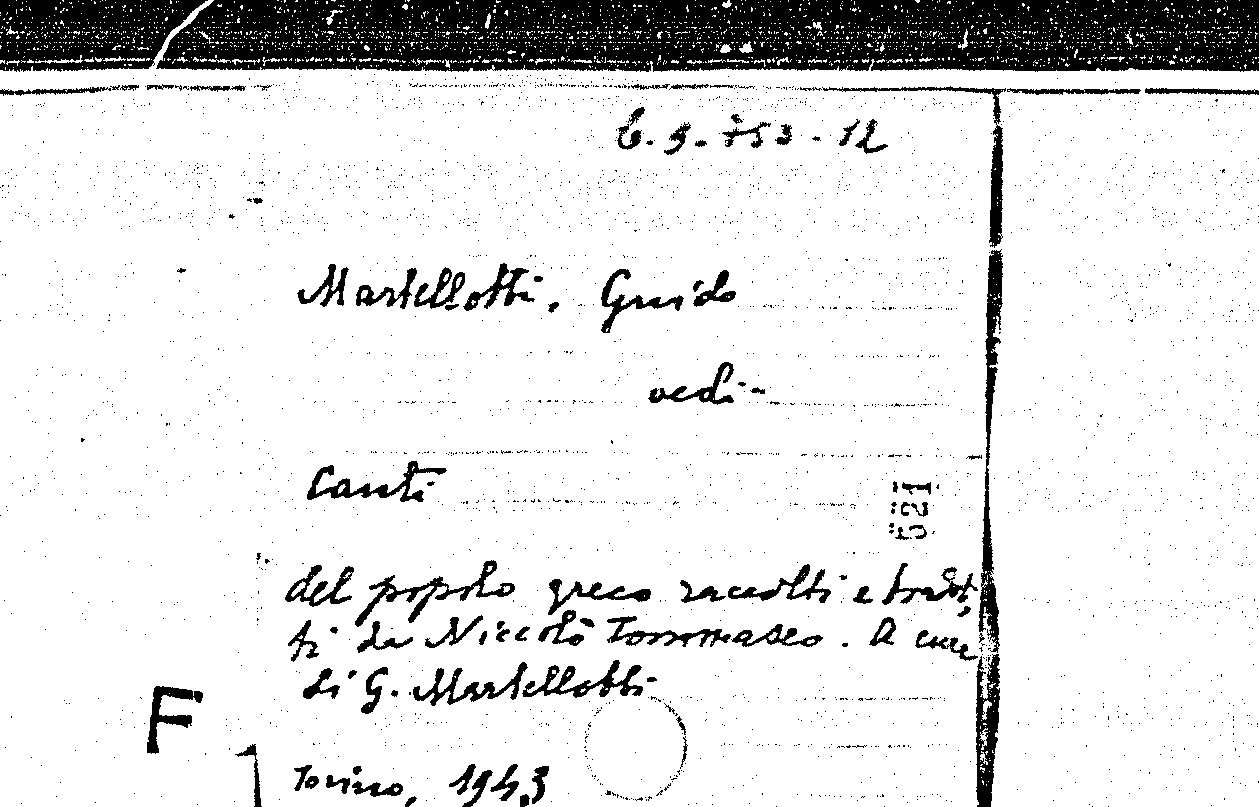 6.9.753.12
Martellotti, Guido
vedi-
Canti
621
del popolo greco raccolti e tradot,
ti da Niccolò Tommaseo. A cura
di G. Martellotti
F
Torino, 1943